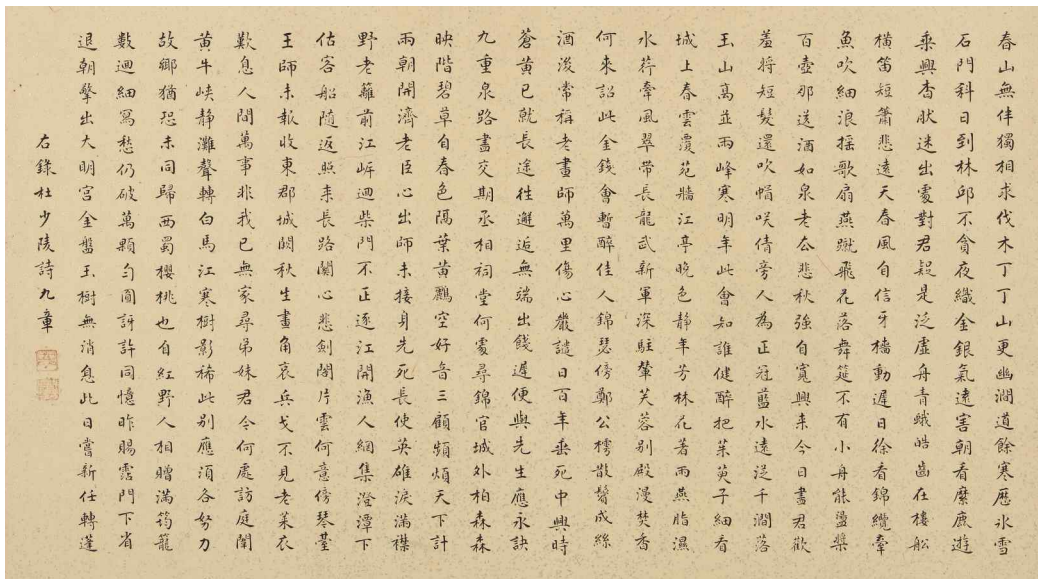 春山無伴獨相求伐木丁丁山更幽澗道餘寒歷冰雪
石門科日到林邱不貪夜織金銀氣遠害朝看麋鹿遊
乘興杳肰迷出處對君疑是泛虛舟青蛾皓齒在樓船
橫笛短簫悲遠天春風自信牙檣動遲日徐看錦纜牽
魚吹細浪搖歌扇燕蹴飛花落舞筵不有小舟能盪槳
百壺那送酒如泉老去悲秋強自寬興來今日盡君歡
羞將短髮還吹帽咲倩旁人為正冠藍水遠從千澗落
玉山高並兩峰寒明年此會知誰健醉把茱萸子細看
城上春雲覆苑牆江亭晚色靜年芳林花著雨燕脂濕
水荇牽風翠帶長龍武新軍深駐輦芙蓉別殿漫焚香
何來詔此金錢會暫醉佳人錦瑟傍鄭公樗散鬢成絲
酒後常稱老畫師萬里傷心嚴譴日百年垂死中興時
蒼黃已就長途往邂逅無端出餞遲便與先生應永訣
九重泉路盡交期丞相祠堂何處尋錦官城外柏森森
映階碧草自春色隔葉黃鸝空好音三顧頻煩天下計
兩朝開濟老臣心出師未接身先死長使英雄淚滿襟
野老籬前江岸迴柴門不正逐江開漁人網集澄潭下
估客船隨返照來長路關心悲劍閣片雲何意傍琴臺
王師未報收東郡城闕秋生畫角哀兵戈不見老萊衣
歎息人間萬事非我已無家尋弟妹君今何處訪庭闈
黃牛峽靜灘聲轉白馬江寒樹影稀此別應須各努力
故鄉猶恐未同歸西蜀櫻桃也自紅野人相贈滿筠籠
數迴細寫愁仍破萬顆勻圓訝許同憶昨賜霑門下省
退朝擎出大明宮金盤玉樹無消息此日嘗新任轉蓬
右錄杜少陵詩九章